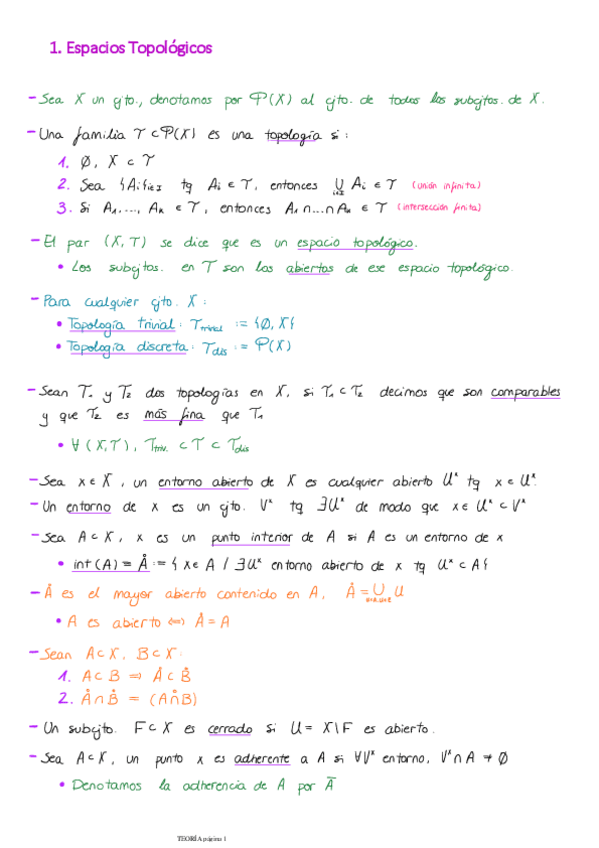 1. Espacios Topológicos
- Sea X un cjto., denotamos por P(X) al cjto. de todos los subcjtos. de X.
- Una familia T ⊂ P(X) es una topología si:
1. Ø, X ⊂ T
2. Sea {Ai}i∈I tq Ai ∈ T, entonces ∪i∈I Ai ∈ T (unión infinita)
3. Si A1, ..., An ∈ T, entonces A1 ∩ ... ∩ An ∈ T (intersección finita)
- El par (X, T) se dice que es un espacio topológico.
• Los subcjtos. en T son los abiertos de ese espacio topológico.
- Para cualquier cjto. X:
• Topología trivial: Ttrivial := {Ø, X}
• Topología discreta: Tdis := P(X)
- Sean T1 y T2 dos topologías en X, si T1 ⊂ T2 decimos que son comparables
y que T2 es más fina que T1
• ∀ (X,T), Ttriv. ⊂ T ⊂ Tdis
- Sea x ∈ X, un entorno abierto de X es cualquier abierto Uˣ tq x ∈ Uˣ.
- Un entorno de x es un cjto. Vˣ tq ∃Uˣ de modo que x ∈ Uˣ ⊂ Vˣ
- Sea A ⊂ X, x es un punto interior de A si A es un entorno de x
• int(A) = Å := { x ∈ A / ∃Uˣ entorno abierto de x tq Uˣ ⊂ A}
- Å es el mayor abierto contenido en A, Å = ∪ U
• A es abierto ⟺ Å = A
- Sean A ⊂ X, B ⊂ X:
1. A ⊂ B ⟹ Å ⊂ B̊
2. Å ∩ B̊ = (A ∩̊ B)
- Un subcjto. F ⊂ X es cerrado si U = X\F es abierto.
- Sea A ⊂ X, un punto x es adherente a A si ∀Vˣ entorno, Vˣ ∩ A ≠ Ø
• Denotamos la adherencia de A por Ā
TEORÍA página 1